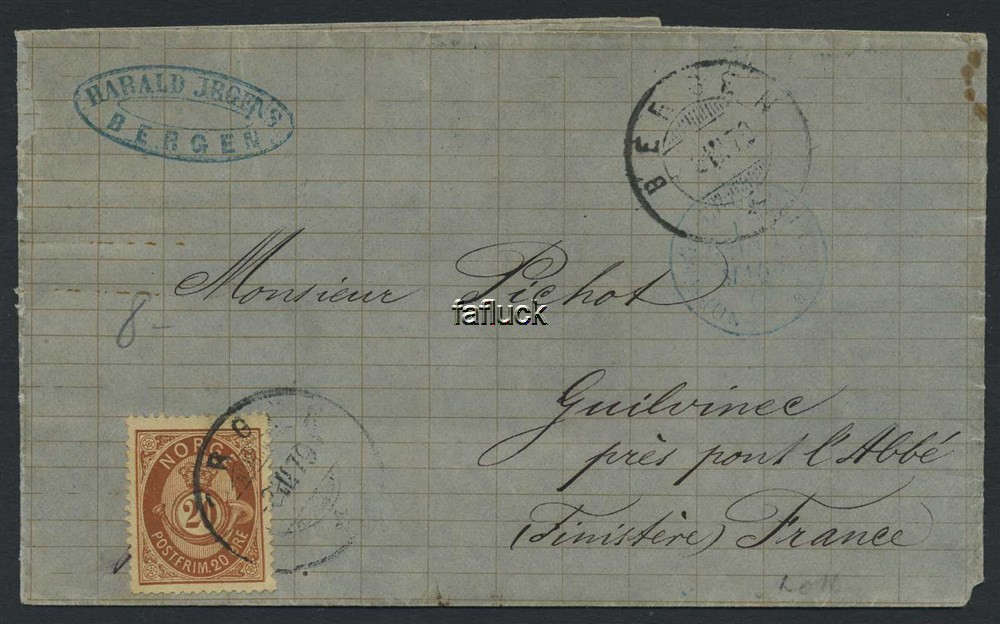 HARALD JRGENS
BERGEN
BERGEN
Monsieur Pichot
fafluck
8-
Guilvinec
près pont l'Abbé
(Finistère) France
NORGE
20
POSTFRIM. 20 ØRE